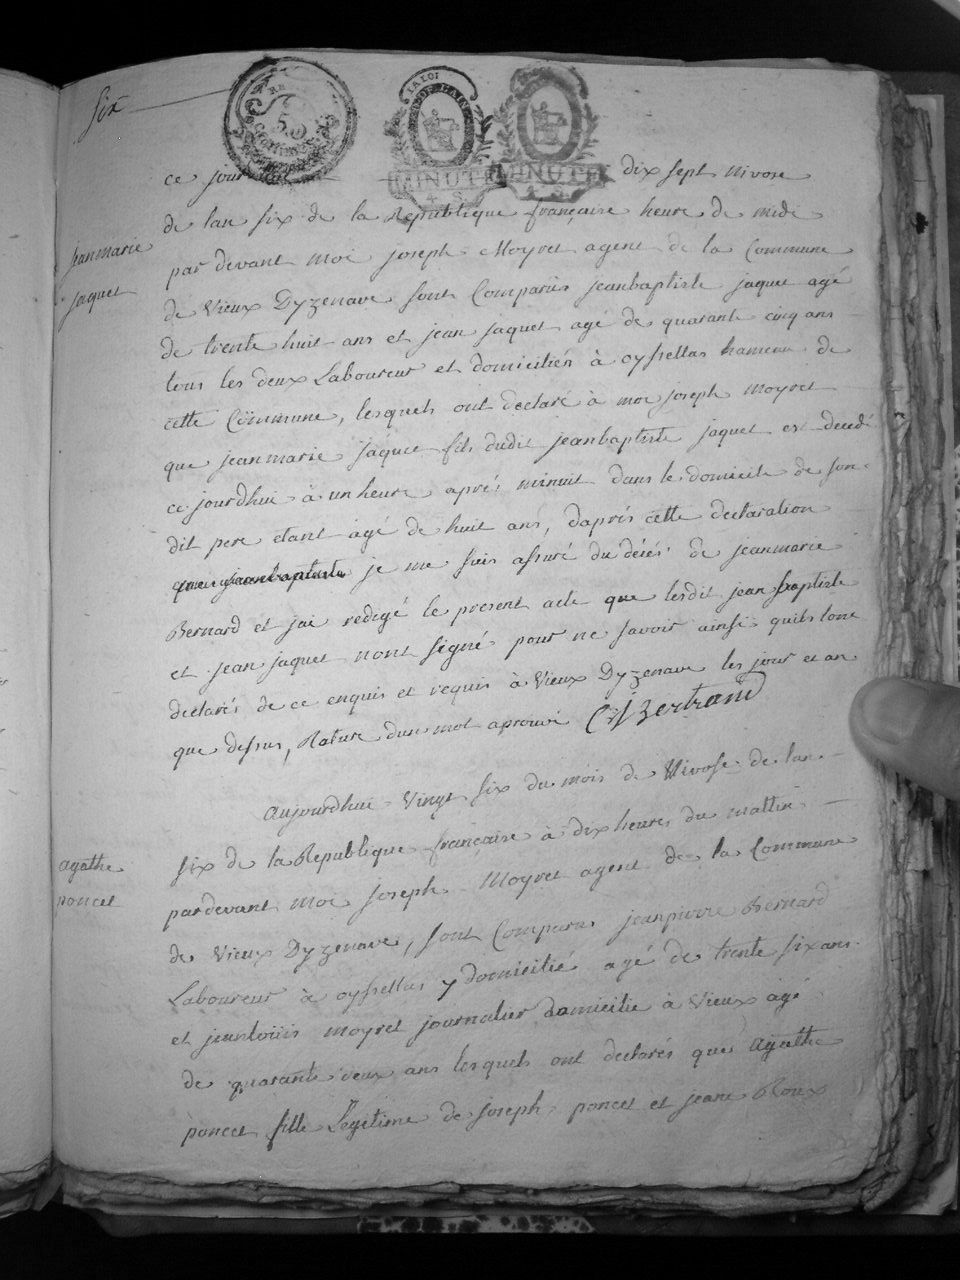 Six
ce jour dix sept nivose
de lan six de la Republique française heure de midi
jeanmarie
jaquet
par devant moi joseph Moyret agent de la Commune
de Vieux Dyzenave sont Comparus jeanbaptiste jaquet agé
de trente huit ans et jean jaquet agé de quarante cinq ans
tous les deux Laboureur et domiciliés à oysellas hameau de
cette Commune, lesquels ont declaré à moi joseph moyret
que jeanmarie jaquet fils dudit jeanbaptiste jaquet est decedé
ce jourdhui à un heure aprés minuit dans le domicile de son
dit pere etant agé de huit ans, daprés cette declaration
je me suis assuré du décés de jeanmarie
Bernard et jai redigé le present acte que lesdit jean baptiste
et jean jaquet nont signé pour ne savoir ainsi quils lont
declarés de ce enquis et requis à Vieux Dyzenave les jour et an
que dessus, Rature dun mot aprouvé Bertrand
aujourdhui vingt six du mois de Nivose de lan
six de la Republique française à dix heures du mattin
agathe
poncet
pardevant moi joseph Moyret agent de la Commune
de Vieux Dyzenave, sont Comparus jeanpierre Bernard
Laboureur à oysellas y domicilié agé de trente six ans
et jeanloüis moyret journalier domicilie à Vieux agé
de quarante deux ans lesquels ont declarés que agathe
poncet fille Legitime de joseph poncet et jeane Roux
LA LOI
MINUTE
MINUTE